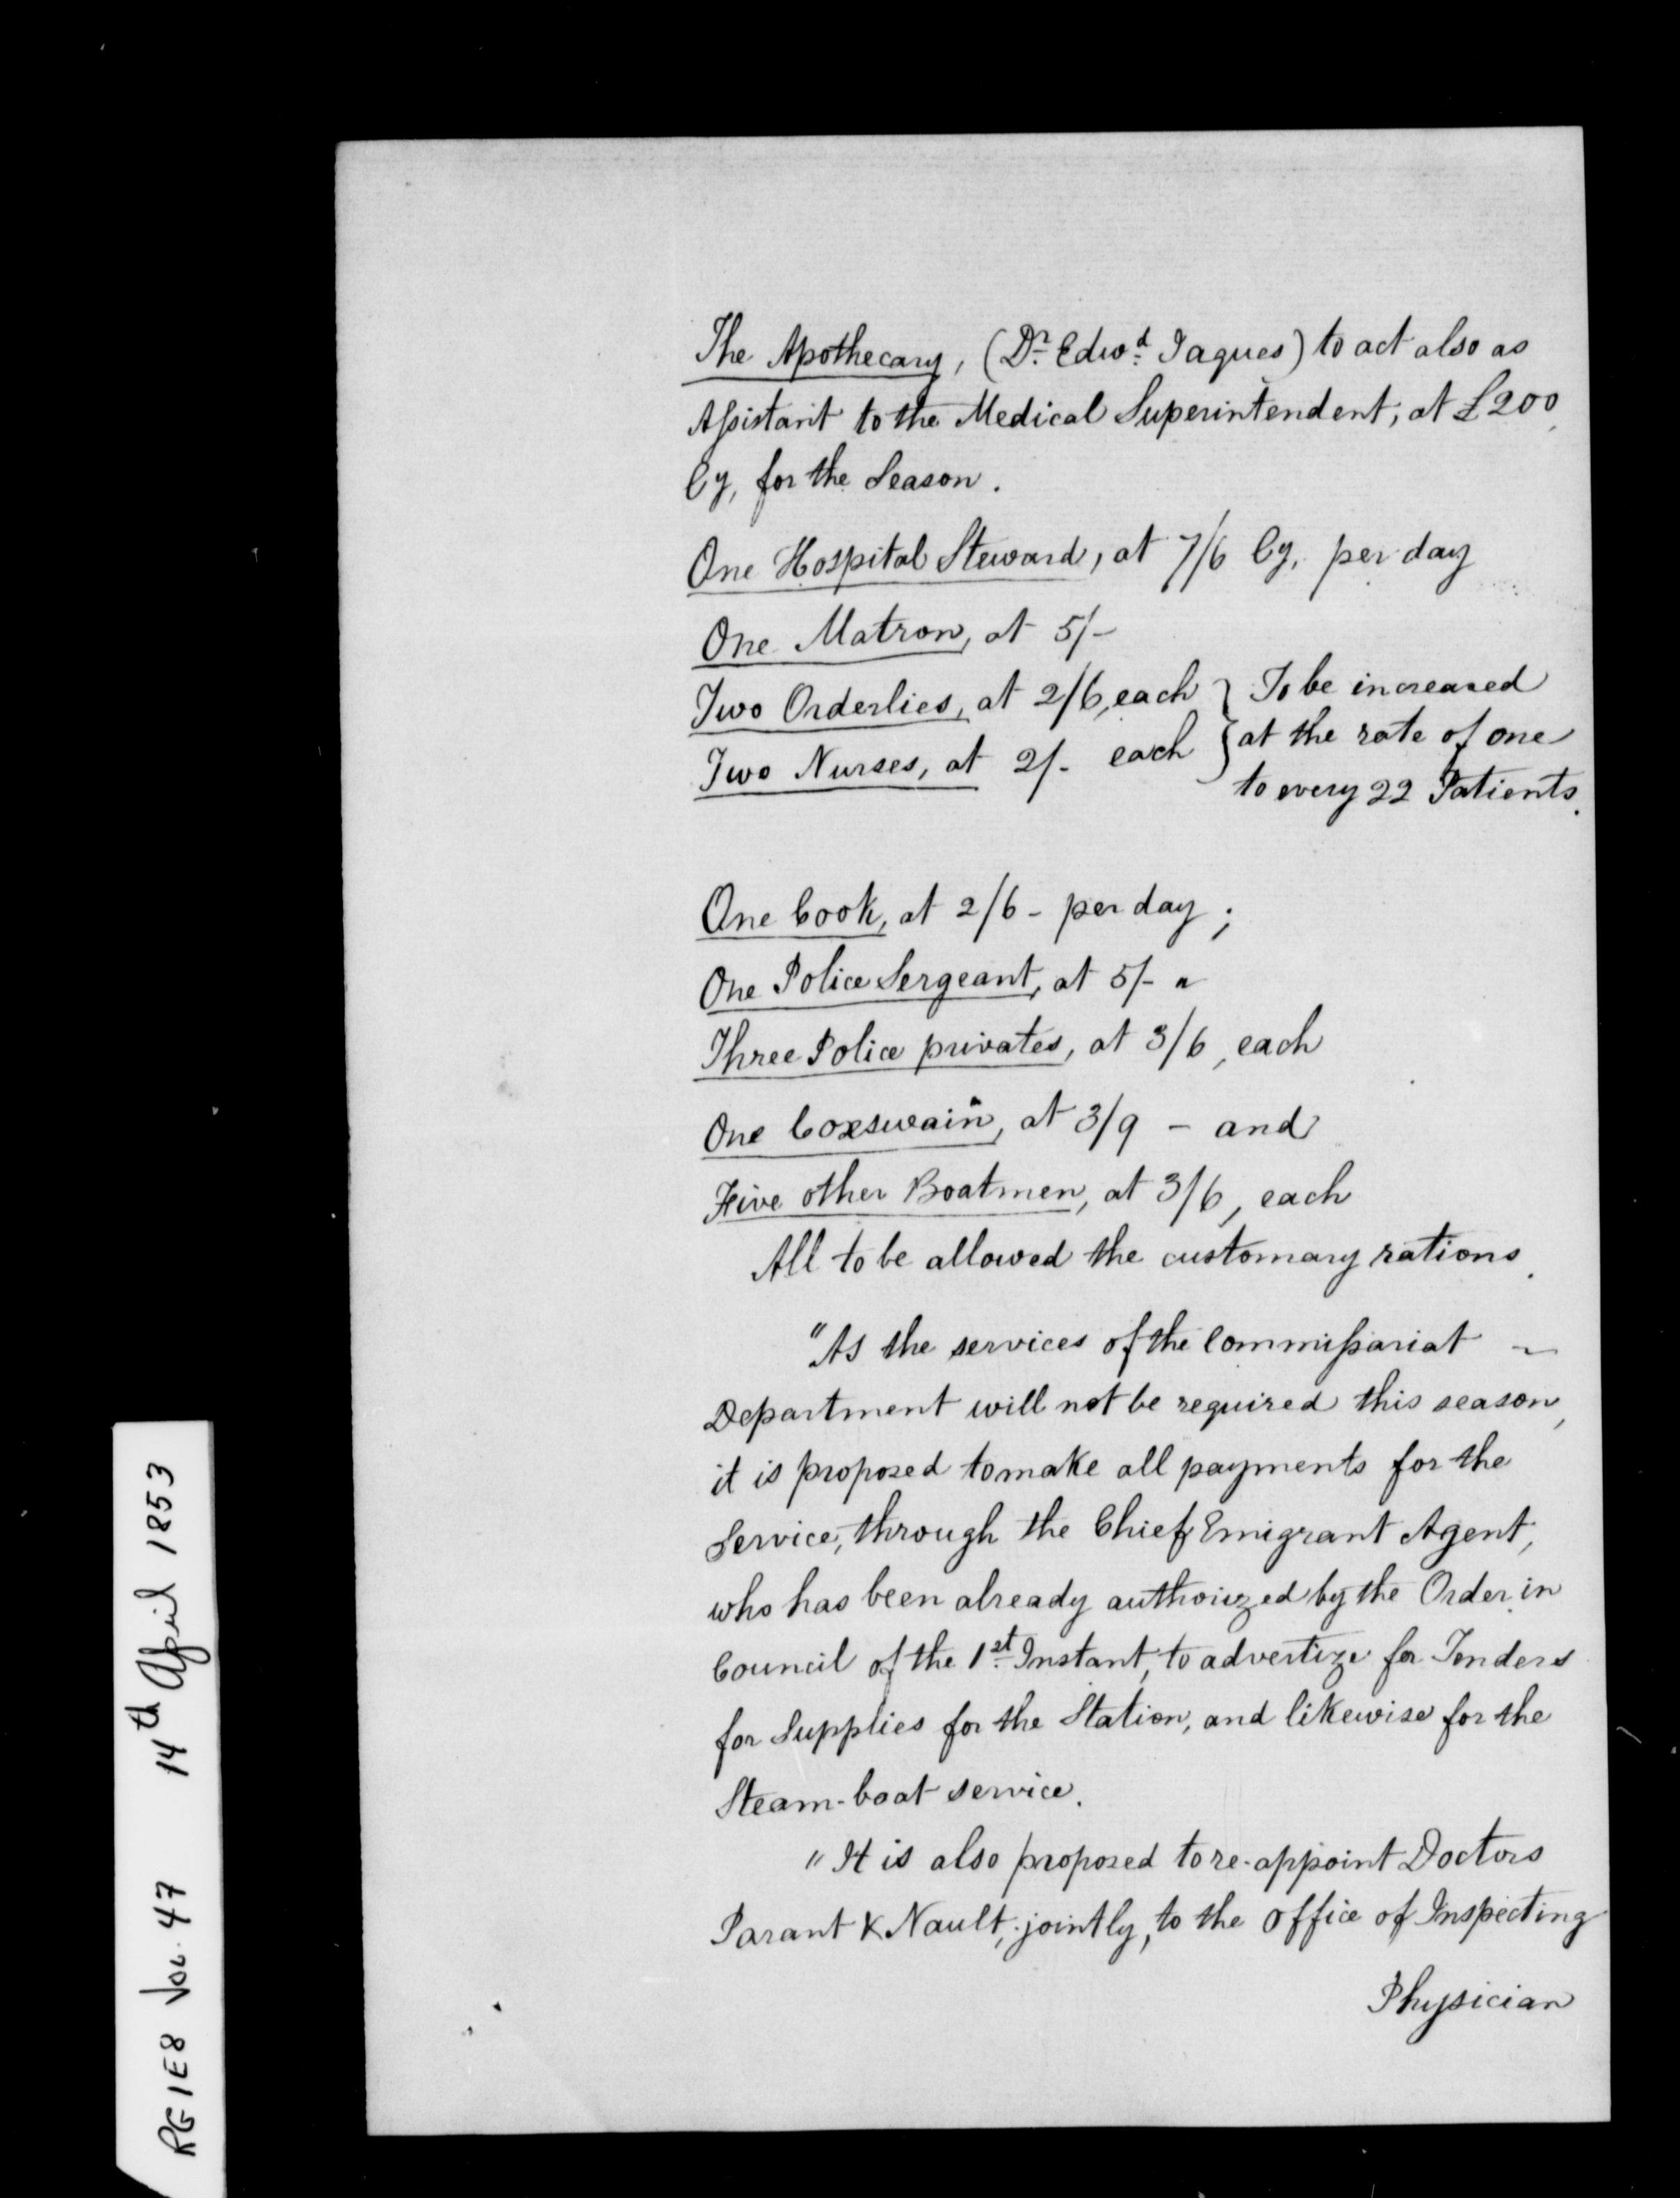 The Apothecary, (Dr. Edwd. Jaques) to act also as
Assistant to the Medical Superintendent; at £200,
Cy, for the Season.
One Hospital Steward, at 7/6 Cy, per day
One Matron, at 5/-
Two Orderlies, at 2/6, each } To be increased
Two Nurses, at 2/- each } at the rate of one
to every 22 Patients.
One Cook, at 2/6 - per day;
One Police Sergeant, at 5/- "
Three Police privates, at 3/6, each
One Coxswain, at 3/9 - and
Five other Boatmen, at 3/6, each
All to be allowed the customary rations.
"As the services of the Commissariat ~
Department will not be required this season,
it is proposed to make all payments for the
Service, through the Chief Emigrant Agent,
who has been already authorized by the Order in
Council of the 1st. Instant, to advertize for Tenders
for Supplies for the Station, and likewise for the
Steam-boat service.
"It is also proposed to re-appoint Doctors
Parant & Nault, jointly, to the office of Inspecting
Physician
RG 1E8 Vol. 47 14th April 1853